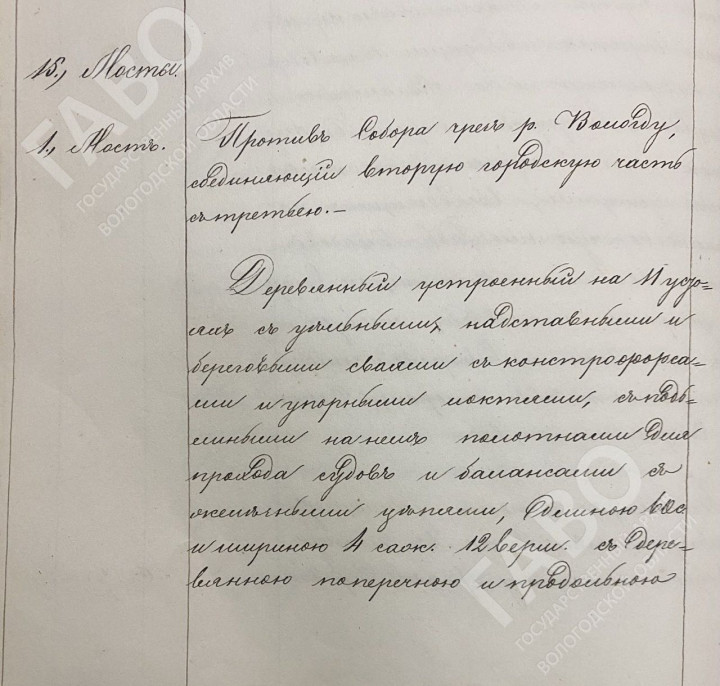 15., Мосты.
1., Мостъ.
Противъ Собора чрезъ р. Вологду,
соединяющій вторую городскую часть
съ третьею. —
Деревянный устроенный на 11 усто-
яхъ съ цѣльными, надставными и
береговыми сваями съ контрофорса-
ми и упорными локтями, съ подъ-
емными на немъ полотнами для
прохода судовъ и балансами съ
желѣзными цѣпями, длиною
и шириною 4 саж. 12 верш. съ дере-
вянною поперечною и продольною
ГАВО
ГОСУДАРСТВЕННЫЙ АРХИВ
ВОЛОГОДСКОЙ ОБЛАСТИ
ГАВО
ГОСУДАРСТВЕННЫЙ АРХИВ
ВОЛОГОДСКОЙ ОБЛАСТИ